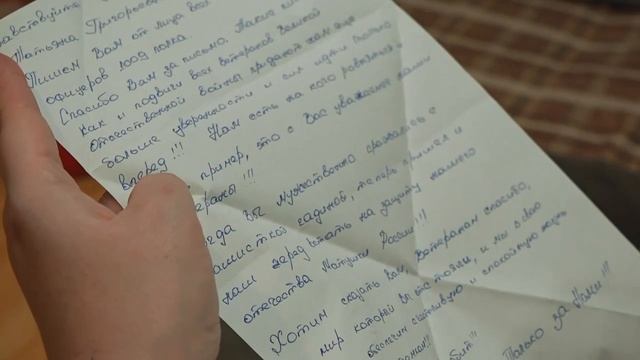 Татьяна Григорьев
Пишем Вам от лица всех
офицеров 1009 полка.
Спасибо Вам за письмо. Такие
как и подвиги всех ветеранов Великой
Отечественной войны придают нам ещё
больше уверенности и сил идти только
вперед!!! Нам есть на кого ровняться и
пример, это с Вас уважаемые наши
ераны!!!
огда вы мужественно сражались с
ашисткой гадиной, теперь пришел и
наш черед встать на защиту нашего
отечества Матушки России!!!
Хотим сказать Вам, Ветеранам спасибо,
мир который Вы отстояли, и мы в свою
обеспечим счастливую и спокойную жизнь
Только за Нами!!!